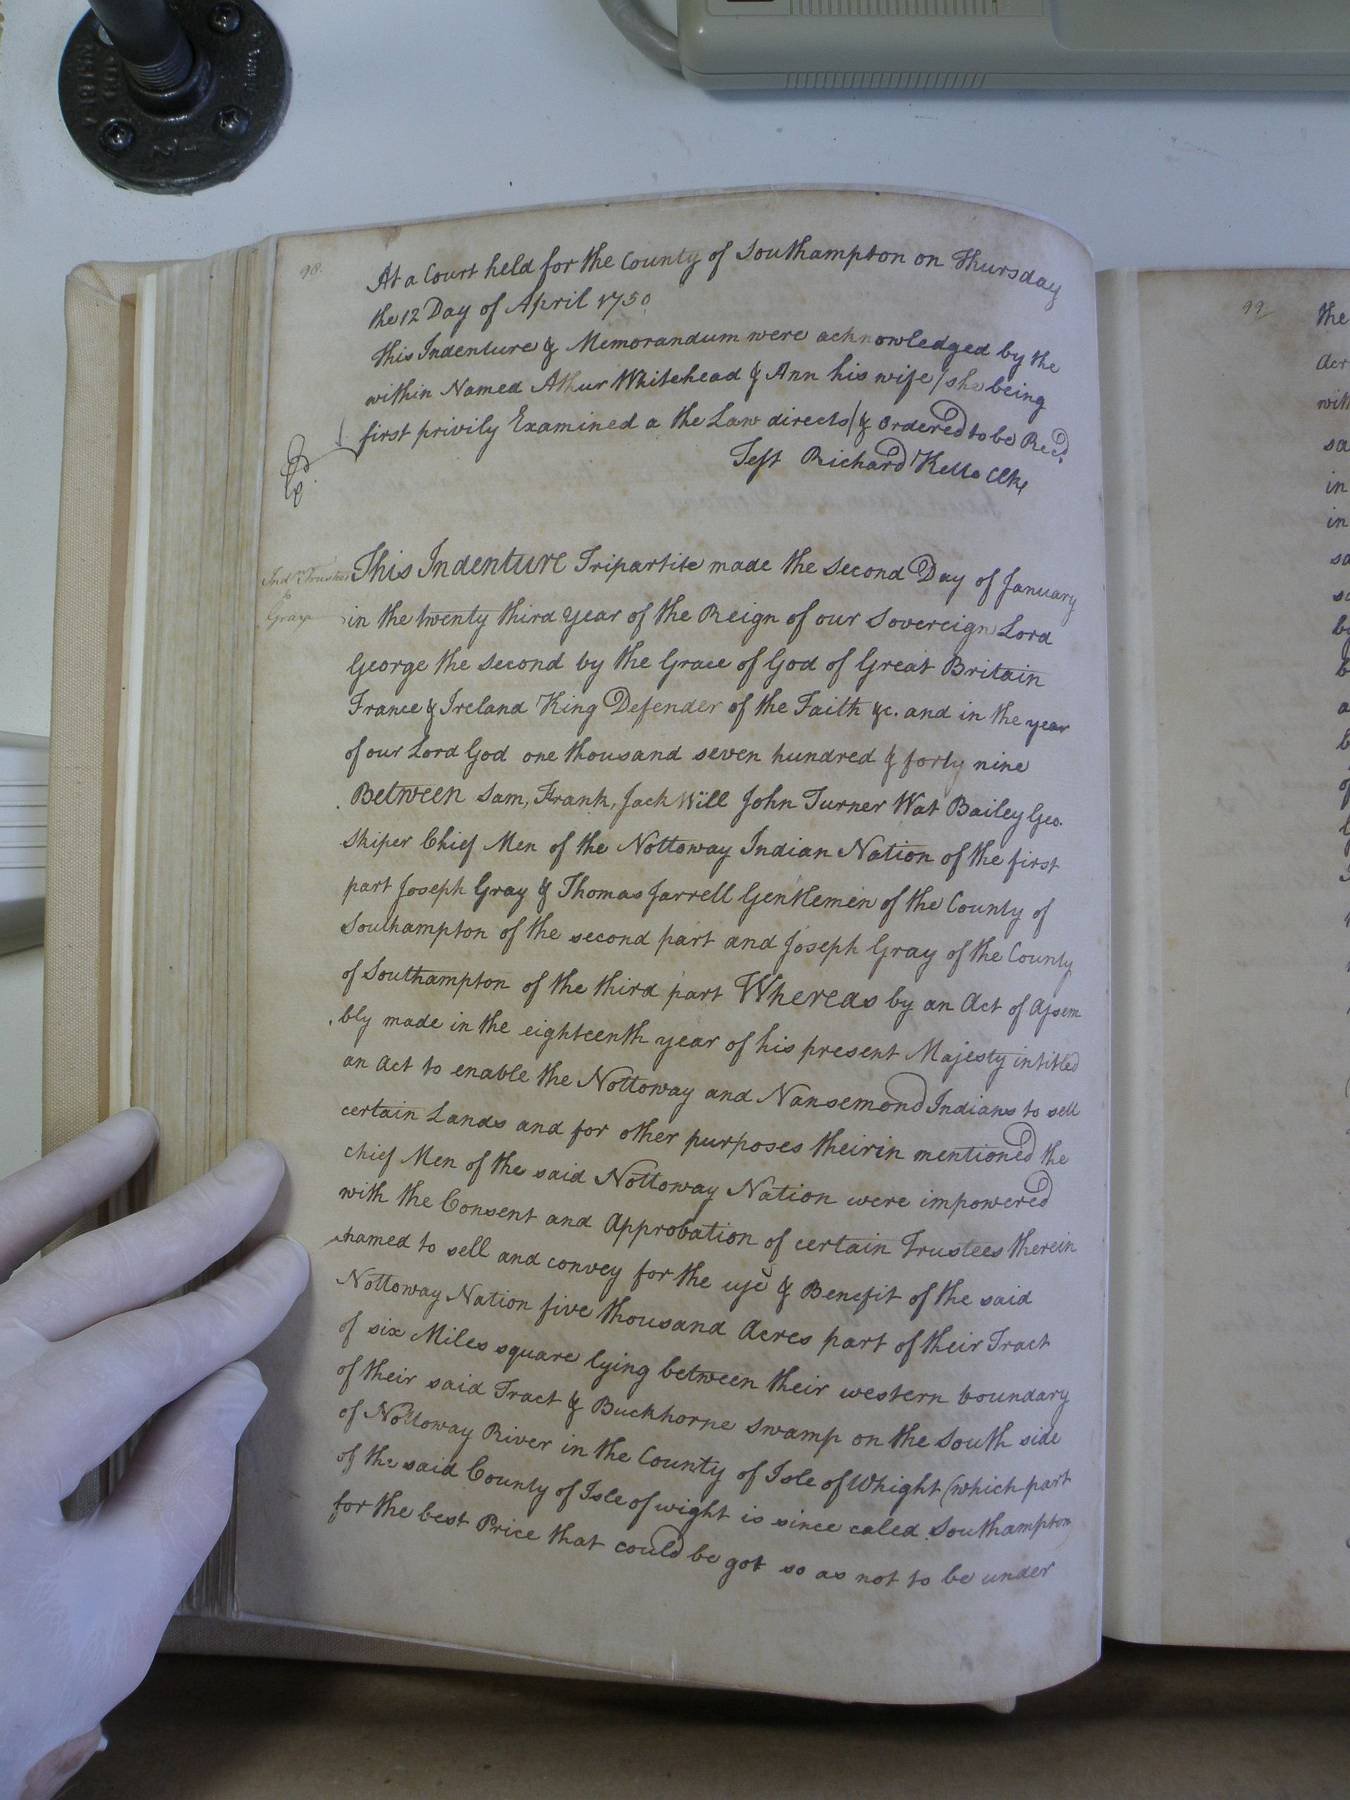 98.
At a Court held for the County of Southampton on Thursday
the 12 Day of April 1750
This Indenture & Memorandum were acknowledged by the
within Named Athur Whitehead & Ann his wife /she being
first privily Examined a the Law directs/ & ordered to be Recd.
Test Richard Kello Clk
Ind Trustees
to
Gray
This Indenture Tripartite made the Second Day of January
in the twenty third Year of the Reign of our Sovereign Lord
George the Second by the Grace of God of Great Britain
France & Ireland King Defender of the Faith &c. and in the year
of our Lord God one thousand seven hundred & forty nine
Between Sam, Frank, Jack Will John Turner Wat Bailey Geo.
Skiper Chief Men of the Nottoway Indian Nation of the first
part Joseph Gray & Thomas Jarrell Gentlemen of the County of
Southampton of the second part and Joseph Gray of the County
of Southampton of the third part Whereas by an Act of Assem
bly made in the eighteenth year of his present Majesty intitled
an Act to enable the Nottoway and Nansemond Indians to sell
certain Lands and for other purposes theirin mentioned the
chief Men of the said Nottoway Nation were impowered
with the Consent and Approbation of certain Trustees therein
named to sell and convey for the use & Benefit of the said
Nottoway Nation five thousand Acres part of their Tract
of six Miles square lying between their western boundary
of their said Tract & Buckhorne Swamp on the South side
of Nottoway River in the County of Isle of Whight (which part
of the said County of Isle of wight is since caled Southampton)
for the best Price that could be got so as not to be under
99
the
Acr
with
sa
in
in
sa